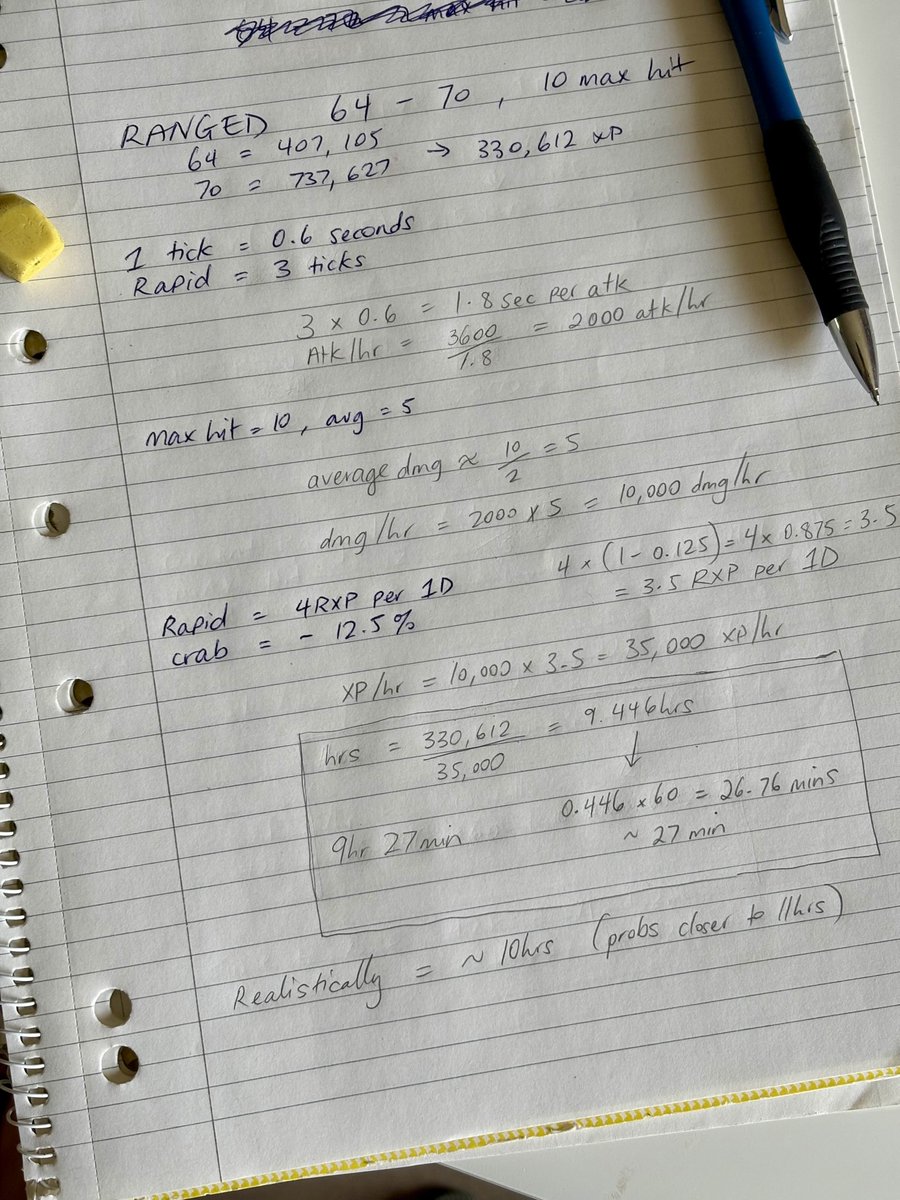 max hit
RANGED 64 - 70 , 10 max hit
64 = 407,105
70 = 737,627 → 330,612 xp
1 tick = 0.6 seconds
Rapid = 3 ticks
3 x 0.6 = 1.8 sec per atk
Atk/hr = 3600/1.8 = 2000 atk/hr
max hit = 10, avg = 5
average dmg ≈ 10/2 = 5
dmg/hr = 2000 x 5 = 10,000 dmg/hr
4 x (1 - 0.125) = 4 x 0.875 = 3.5
= 3.5 RXP per 1D
Rapid = 4RXP per 1D
crab = - 12.5%
XP/hr = 10,000 x 3.5 = 35,000 xp/hr
hrs = 330,612/35,000 = 9.446hrs
↓
0.446 x 60 = 26.76 mins
~ 27 min
9hr 27min
Realistically = ~ 10hrs (probs closer to 11hrs)